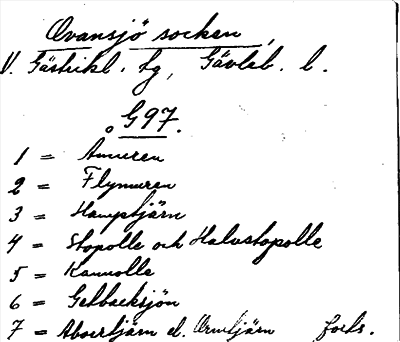 Ovansjö socken,
V. Gästrikl. tg, Gävleb. l.
G97.
1 = Ånmuren
2 = Flymuren
3 = Hampstjärn
4 = Stopolle och Halvstopolle
5 = Kannolle
6 = Getbacksjön
7 = el. Ormtjärn forts.